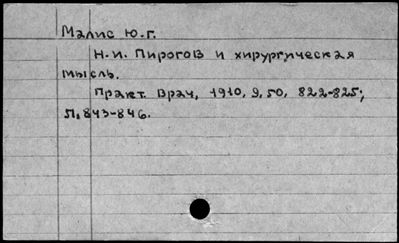 Малис Ю.Г.
Н.И. Пирогов и хирургическая
мысль.
Практ. Врач, 1910, 9, 50, 822-825;
51, 843-846.